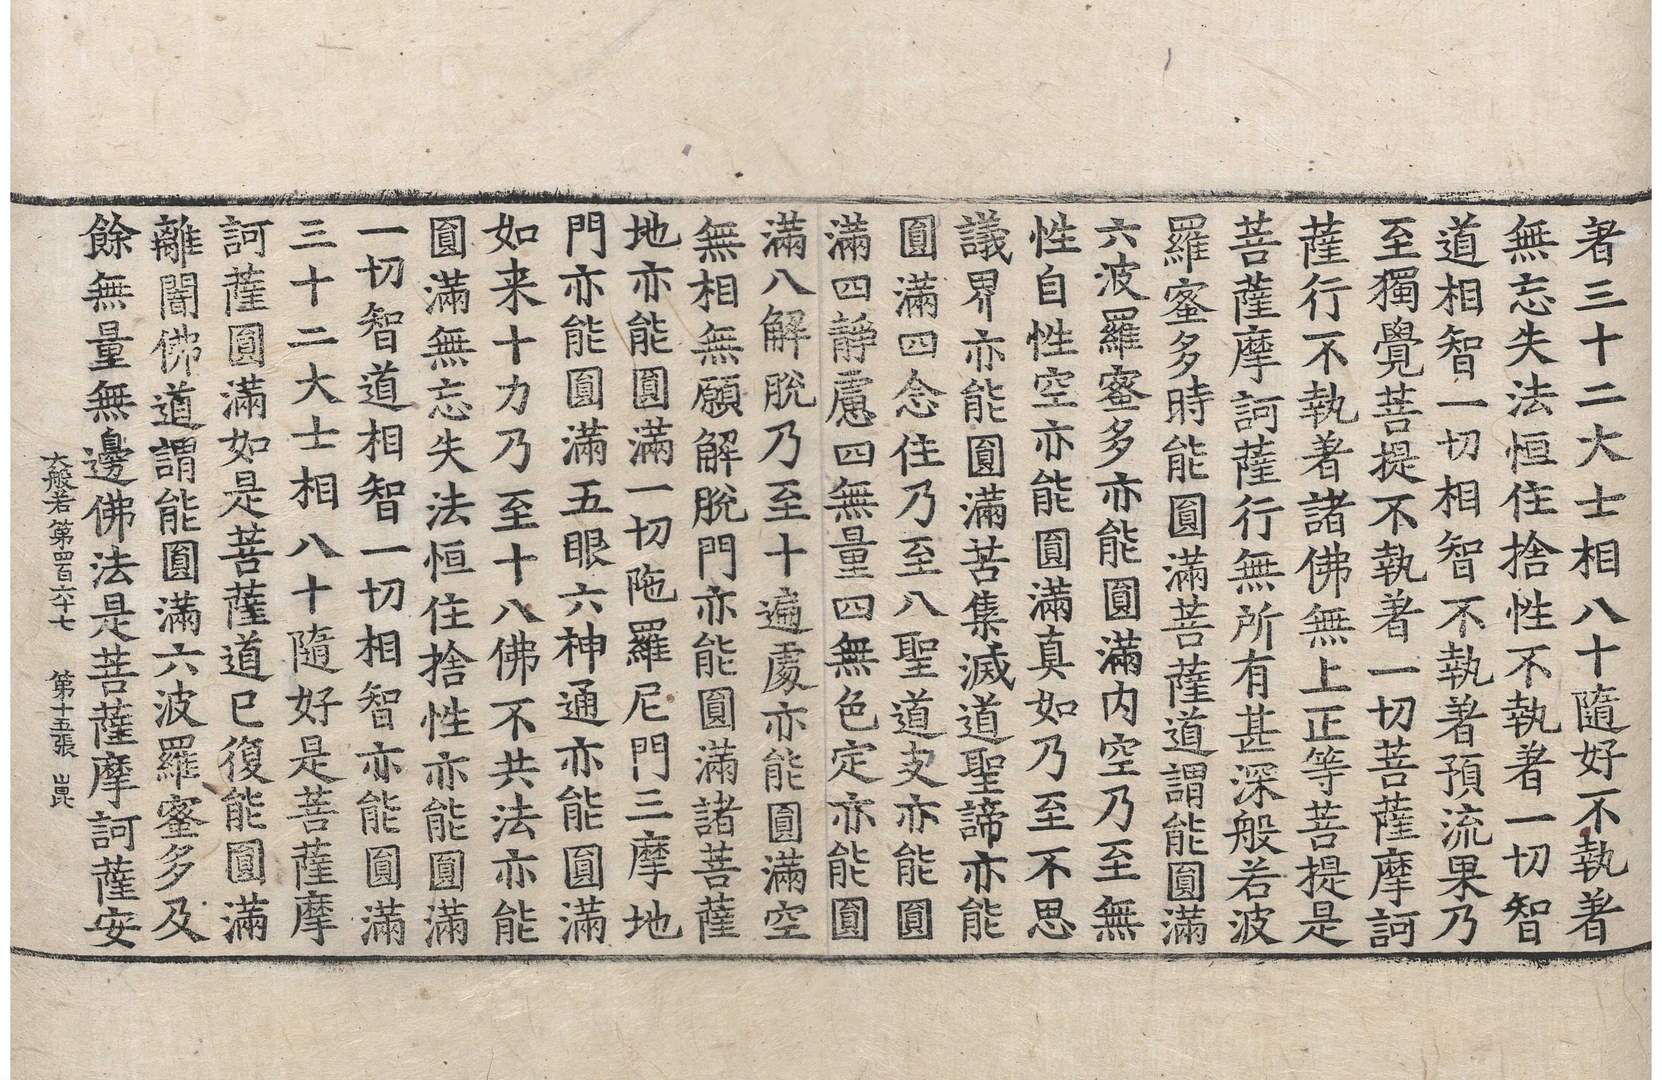 著三十二大士相八十隨好不執著
無忘失法恒住捨性不執著一切智
道相智一切相智不執著預流果乃
至獨覺菩提不執著一切菩薩摩訶
薩行不執著諸佛無上正等菩提是
菩薩摩訶薩行無所有甚深般若波
羅蜜多時能圓滿菩薩道謂能圓滿
六波羅蜜多亦能圓滿内空乃至無
性自性空亦能圓滿真如乃至不思
議界亦能圓滿苦集滅道聖諦亦能
圓滿四念住乃至八聖道支亦能圓
滿四靜慮四無量四無色定亦能圓
滿八解脫乃至十遍處亦能圓滿空
無相無願解脫門亦能圓滿諸菩薩
地亦能圓滿一切陁羅尼門三摩地
門亦能圓滿五眼六神通亦能圓滿
如来十力乃至十八佛不共法亦能
圓滿無忘失法恒住捨性亦能圓滿
一切智道相智一切相智亦能圓滿
三十二大士相八十隨好是菩薩摩
訶薩圓滿如是菩薩道已復能圓滿
離闇佛道謂能圓滿六波羅蜜多及
餘無量無邊佛法是菩薩摩訶薩安
大般若第四百六十七 第十五張 崑